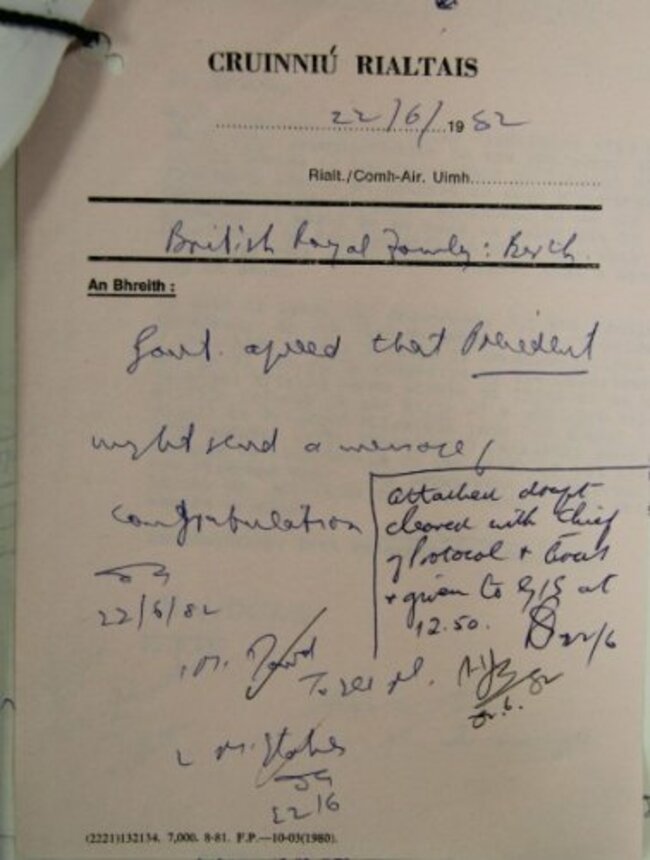 CRUINNIÚ RIALTAIS
22/6/1982
Rialt./Comh-Air. Uimh.
British Royal Family: Birth.
An Bhreith:
Govt. agreed that President
might send a message of
congratulation
22/6/82
attached draft
cleared with Chief
of Protocol +
+ given to GIS at
12.50.
22/6
Mr.
To see pl.
Mr. Stokes
22/6
(2221)132134. 7,000. 8-81. F.P.—10-03(1980).